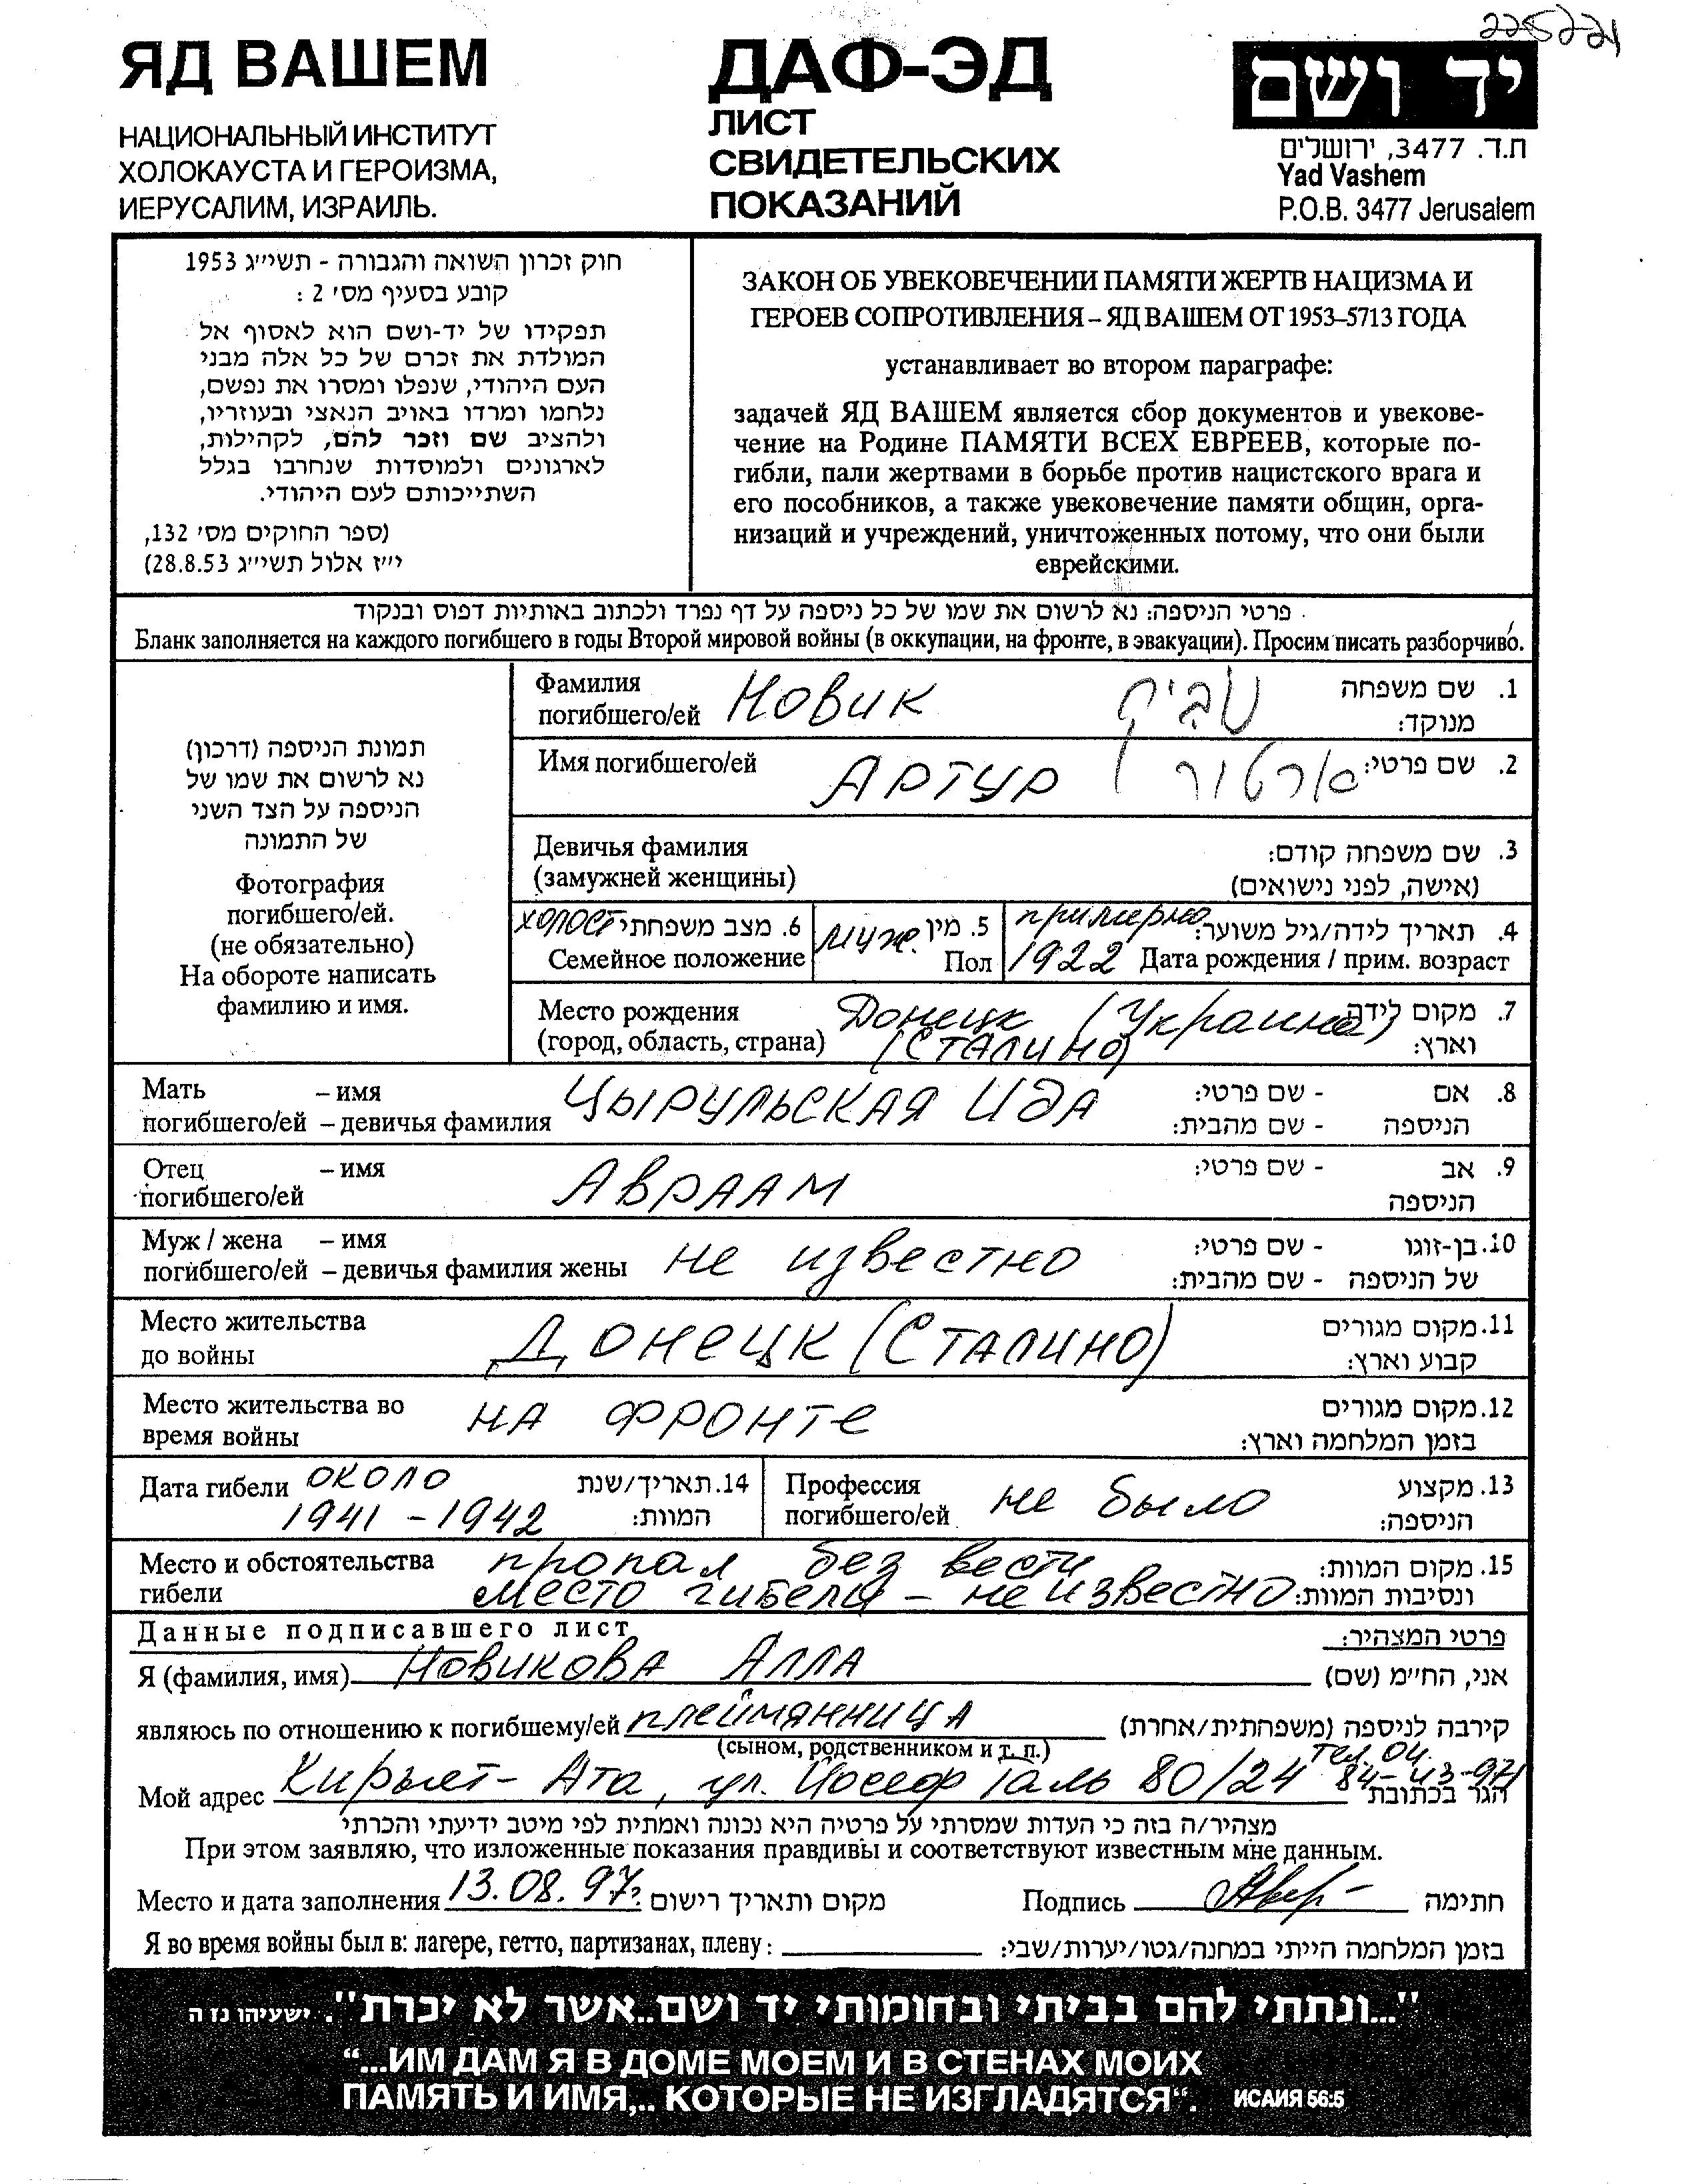 225221
ЯД ВАШЕМ
НАЦИОНАЛЬНЫЙ ИНСТИТУТ
ХОЛОКАУСТА И ГЕРОИЗМА,
ИЕРУСАЛИМ, ИЗРАИЛЬ.
ДАФ-ЭД
ЛИСТ
СВИДЕТЕЛЬСКИХ
ПОКАЗАНИЙ
יד ושם
ת.ד. 3477, ירושלים
Yad Vashem
P.O.B. 3477 Jerusalem
חוק זכרון השואה והגבורה - תשי״ג 1953
קובע בסעיף מס' 2 :
תפקידו של יד-ושם הוא לאסוף אל
המולדת את זכרם של כל אלה מבני
העם היהודי, שנפלו ומסרו את נפשם,
נלחמו ומרדו באויב הנאצי ובעוזריו,
ולהציב שם וזכר להם, לקהילות,
לארגונים ולמוסדות שנחרבו בגלל
השתייכותם לעם היהודי.
(ספר החוקים מס' 132,
י״ז אלול תשי״ג 28.8.53)
ЗАКОН ОБ УВЕКОВЕЧЕНИИ ПАМЯТИ ЖЕРТВ НАЦИЗМА И
ГЕРОЕВ СОПРОТИВЛЕНИЯ – ЯД ВАШЕМ ОТ 1953–5713 ГОДА
устанавливает во втором параграфе:
задачей ЯД ВАШЕМ является сбор документов и увекове-
чение на Родине ПАМЯТИ ВСЕХ ЕВРЕЕВ, которые по-
гибли, пали жертвами в борьбе против нацистского врага и
его пособников, а также увековечение памяти общин, орга-
низаций и учреждений, уничтоженных потому, что они были
еврейскими.
פרטי הניספה: נא לרשום את שמו של כל ניספה על דף נפרד ולכתוב באותיות דפוס ובנקוד
Бланк заполняется на каждого погибшего в годы Второй мировой войны (в оккупации, на фронте, в эвакуации). Просим писать разборчиво.
תמונת הניספה (דרכון)
נא לרשום את שמו של
הניספה על הצד השני
של התמונה
Фотография
погибшего/ей.
(не обязательно)
На обороте написать
фамилию и имя.
Фамилия
погибшего/ей Новик נוביק
1. שם משפחה
מנוקד:
Имя погибшего/ей Артур ארטור 2. שם פרטי:
Девичья фамилия
(замужней женщины)
3. שם משפחה קודם:
(אישה, לפני נישואים)
холост 6. מצב משפחתי
Семейное положение
муж. 5. מין
Пол
примерно 4. תאריך לידה/גיל משוער:
1922 Дата рождения / прим. возраст
Место рождения
(город, область, страна) Донецк (Украина)
(Сталино)
7. מקום לידה
וארץ:
Мать – имя
погибшего/ей – девичья фамилия Цырульская Ида
8. אם - שם פרטי:
הניספה - שם מהבית:
Отец – имя
погибшего/ей Авраам
9. אב - שם פרטי:
הניספה
Муж / жена – имя
погибшего/ей – девичья фамилия жены не известно
10. בן-זוגו - שם פרטי:
של הניספה - שם מהבית:
Место жительства
до войны Донецк (Сталино)
11. מקום מגורים
קבוע וארץ:
Место жительства во
время войны на фронте
12. מקום מגורים
בזמן המלחמה וארץ:
Дата гибели около
1941 - 1942
14. תאריך/שנת
המוות:
Профессия
погибшего/ей не было
13. מקצוע
הניספה:
Место и обстоятельства
гибели пропал без вести
место гибели - не известно
15. מקום המוות:
ונסיבות המוות:
Данные подписавшего лист פרטי המצהיר:
Я (фамилия, имя) Новикова Алла אני, החי״מ (שם)
являюсь по отношению к погибшему/ей племянница קירבה לניספה (משפחתית/אחרת)
(сыном, родственником и т. п.)
Мой адрес Кирьят-Ата, ул. Йосеф Галь 80/24 тел. 04. 84-43-971 הגר בכתובת
מצהיר/ה בזה כי העדות שמסרתי על פרטיה היא נכונה ואמתית לפי מיטב ידיעתי והכרתי
При этом заявляю, что изложенные показания правдивы и соответствуют известным мне данным.
Место и дата заполнения 13.08.97г. מקום ותאריך רישום Подпись חתימה
Я во время войны был в: лагере, гетто, партизанах, плену: בזמן המלחמה הייתי במחנה/גטו/יערות/שבי:
"...ונתתי להם בביתי ובחומותי יד ושם...אשר לא יכרת". ישעיהו נו ה
“...ИМ ДАМ Я В ДОМЕ МОЕМ И В СТЕНАХ МОИХ
ПАМЯТЬ И ИМЯ,.. КОТОРЫЕ НЕ ИЗГЛАДЯТСЯ“. ИСАИЯ 56:5